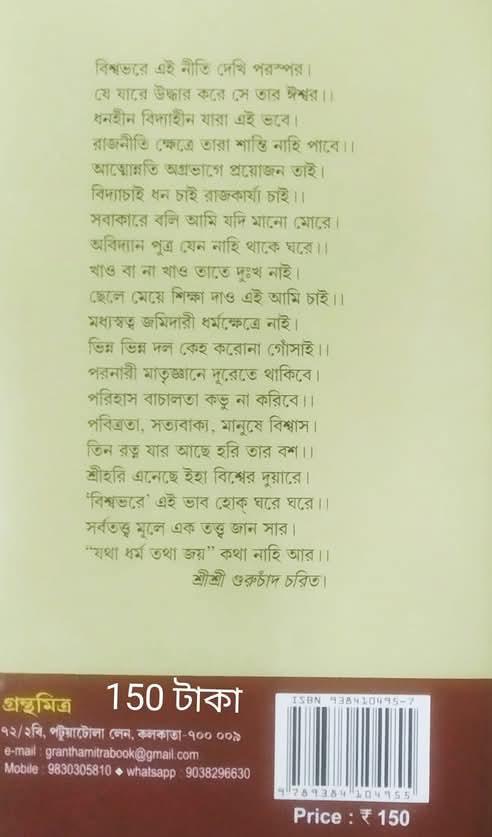 বিশ্বভরে এই নীতি দেখি পরস্পর।
যে যারে উদ্ধার করে সে তার ঈশ্বর।।
ধনহীন বিদ্যাহীন যারা এই ভবে।
রাজনীতি ক্ষেত্রে তারা শান্তি নাহি পাবে।।
আত্মোন্নতি অগ্রভাগে প্রয়োজন তাই।
বিদ্যাচাই ধন চাই রাজকার্য্য চাই।।
সবাকারে বলি আমি যদি মানো মোরে।
অবিদ্যান পুত্র যেন নাহি থাকে ঘরে।।
খাও বা না খাও তাতে দুঃখ নাই।
ছেলে মেয়ে শিক্ষা দাও এই আমি চাই।।
মধ্যস্বত্ব জমিদারী ধর্মক্ষেত্রে নাই।
ভিন্ন ভিন্ন দল কেহ করোনা গোঁসাই।।
পরনারী মাতৃজ্ঞানে দূরেতে থাকিবে।
পরিহাস বাচালতা কভু না করিবে।।
পবিত্রতা, সত্যবাক্য, মানুষে বিশ্বাস।
তিন রত্ন যার আছে হরি তার বশ।।
শ্রীহরি এনেছে ইহা বিশ্বের দুয়ারে।
‘বিশ্বভরে’ এই ভাব হোক্ ঘরে ঘরে।।
সর্বতত্ত্ব মূলে এক তত্ত্ব জান সার।
“যথা ধর্ম তথা জয়” কথা নাহি আর।।
শ্রীশ্রী গুরুচাঁদ চরিত।
গ্রন্থমিত্র
150 টাকা
৭২/২বি, পটুয়াটোলা লেন, কলকাতা-৭০০ ০০৯
e-mail : granthamitrabook@gmail.com
Mobile : 9830305810 ◆ whatsapp : 9038296630
ISBN 938410495-7
9 789384 104955
Price : ₹ 150